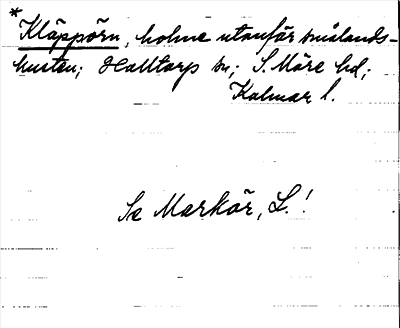 * Kläppörn, holme utanför smålands-
kusten; Halltorp sn; S. Möre hd;
Kalmar l.
Se Markör, L.!